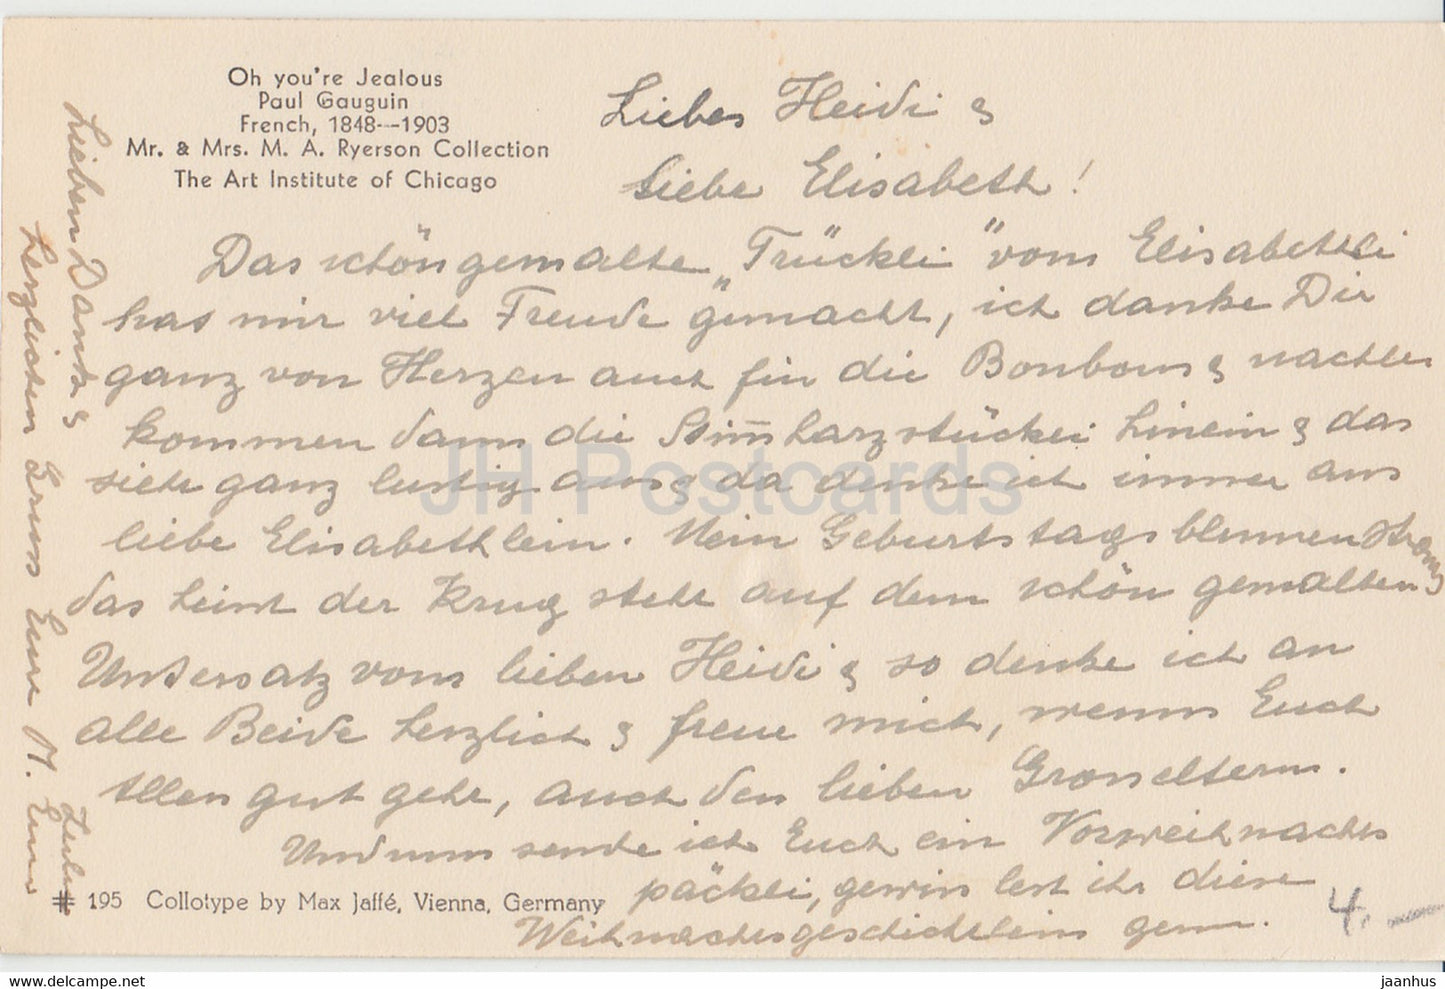 Oh you're Jealous
Paul Gauguin
French, 1848--1903
Mr. & Mrs. M. A. Ryerson Collection
The Art Institute of Chicago
Liebes Heidi &
liebe Elisabeth!
Das schön gemalte „Trückli" vom Elisabethli
has mir viel Freude gemacht, ich danke Dir
ganz von Herzen auch für die Bonbons & nachher
kommen dann die harzstückli hinein & das
sieht ganz lustig aus & da denke ich immer ans
liebe Elisabethlein. Mein Geburtstagsblumen
das heisst der Krug steht auf dem schön gemalten
Untersatz vom lieben Heidi & so denke ich an
alle Beide herzlich & freue mich, wenn Euch
Allen gut geht, auch den lieben Grosseltern.
Und nun sende ich Euch ein Vorweihnachts
päckli, gewiss lest ihr diese
Weihnachtsgeschichtlein gern.
Lieben Dank &
herzlichen Gruss Eure M.
# 195 Collotype by Max Jaffé, Vienna, Germany
4.-
JH Postcards
hip-postcard.com/store/jaanhus
jaanhus